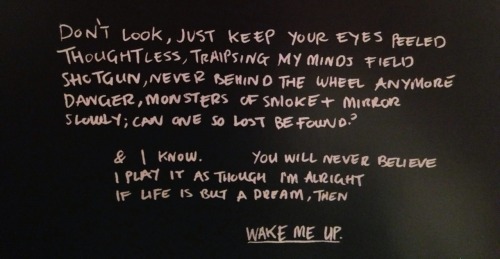 DON'T LOOK, JUST KEEP YOUR EYES PEELED
THOUGHTLESS, TRAIPSING MY MINDS FIELD
SHOTGUN, NEVER BEHIND THE WHEEL ANYMORE
DANGER, MONSTERS OF SMOKE + MIRROR
SLOWLY; CAN ONE SO LOST BE FOUND?
& I KNOW. YOU WILL NEVER BELIEVE
I PLAY IT AS THOUGH I'M ALRIGHT
IF LIFE IS BUT A DREAM, THEN
WAKE ME UP.